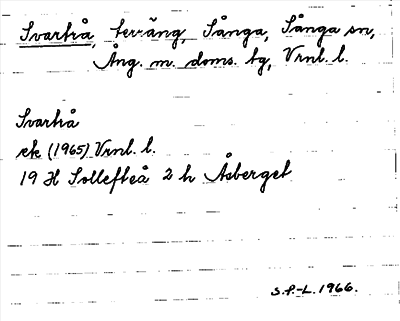 Svartrå, terräng, Sånga, Sånga sn,
Ång. m. doms. tg, Vrnl. l.
Svartrå
ek (1965) Vrnl. l.
19 H Sollefteå 2 h Åsberget
S.P.-L. 1966.